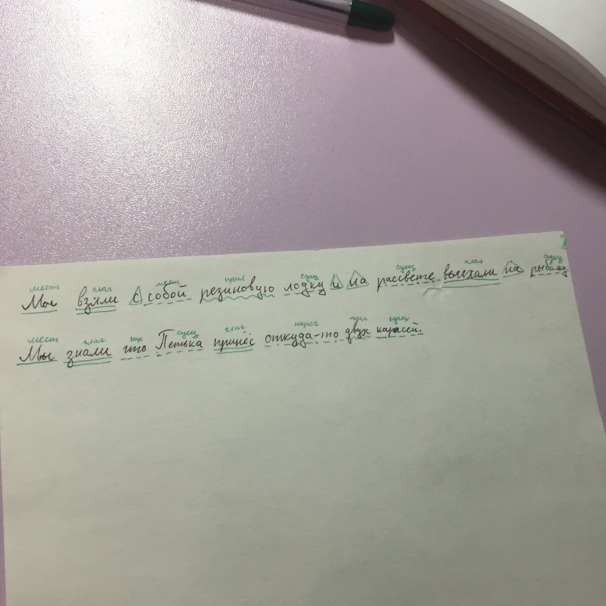 мест глаг мест прил сущ сущ глаг сущ
Мы взяли с собой резиновую лодку и на рассвете выехали на рыбалку.
мест глаг сущ глаг нареч сущ
Мы знали что Петька принёс откуда-то двух карасей.